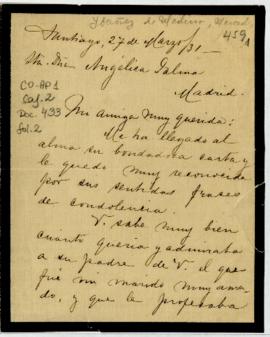 Ybáñez de Merino, Merced
459
Santiago, 27 de Marzo/31—
Sta. Dña Angélica Palma
Madrid.
CO-AP1
Caj. 2
Doc. 433
Fol. 2
Mi amiga muy querida:
Me ha llegado al
alma su bondadosa carta y
le quedo muy reconocida
por sus sentidas frases
de condolencia.
V. sabe muy bien
cuánto quería y admiraba
a su padre de V. el que
fué mi marido muy ama-
do, y que le profesaba